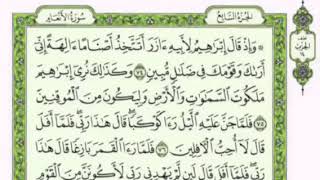 الجزء السابع سورة الأنعام
۞ وَإِذْ قَالَ إِبْرَٰهِيمُ لِأَبِيهِ ءَازَرَ أَتَتَّخِذُ أَصْنَامًا ءَالِهَةً إِنِّىٓ
أَرَىٰكَ وَقَوْمَكَ فِى ضَلَٰلٍ مُّبِينٍ ٧٤ وَكَذَٰلِكَ نُرِىٓ إِبْرَٰهِيمَ
مَلَكُوتَ ٱلسَّمَٰوَٰتِ وَٱلْأَرْضِ وَلِيَكُونَ مِنَ ٱلْمُوقِنِينَ
٧٥ فَلَمَّا جَنَّ عَلَيْهِ ٱلَّيْلُ رَءَا كَوْكَبًا ۖ قَالَ هَٰذَا رَبِّى ۖ فَلَمَّآ أَفَلَ
قَالَ لَآ أُحِبُّ ٱلْـَٔافِلِينَ ٧٦ فَلَمَّا رَءَا ٱلْقَمَرَ بَازِغًا قَالَ هَٰذَا
رَبِّى ۖ فَلَمَّآ أَفَلَ قَالَ لَئِن لَّمْ يَهْدِنِى رَبِّى لَأَكُونَنَّ مِنَ ٱلْقَوْمِ